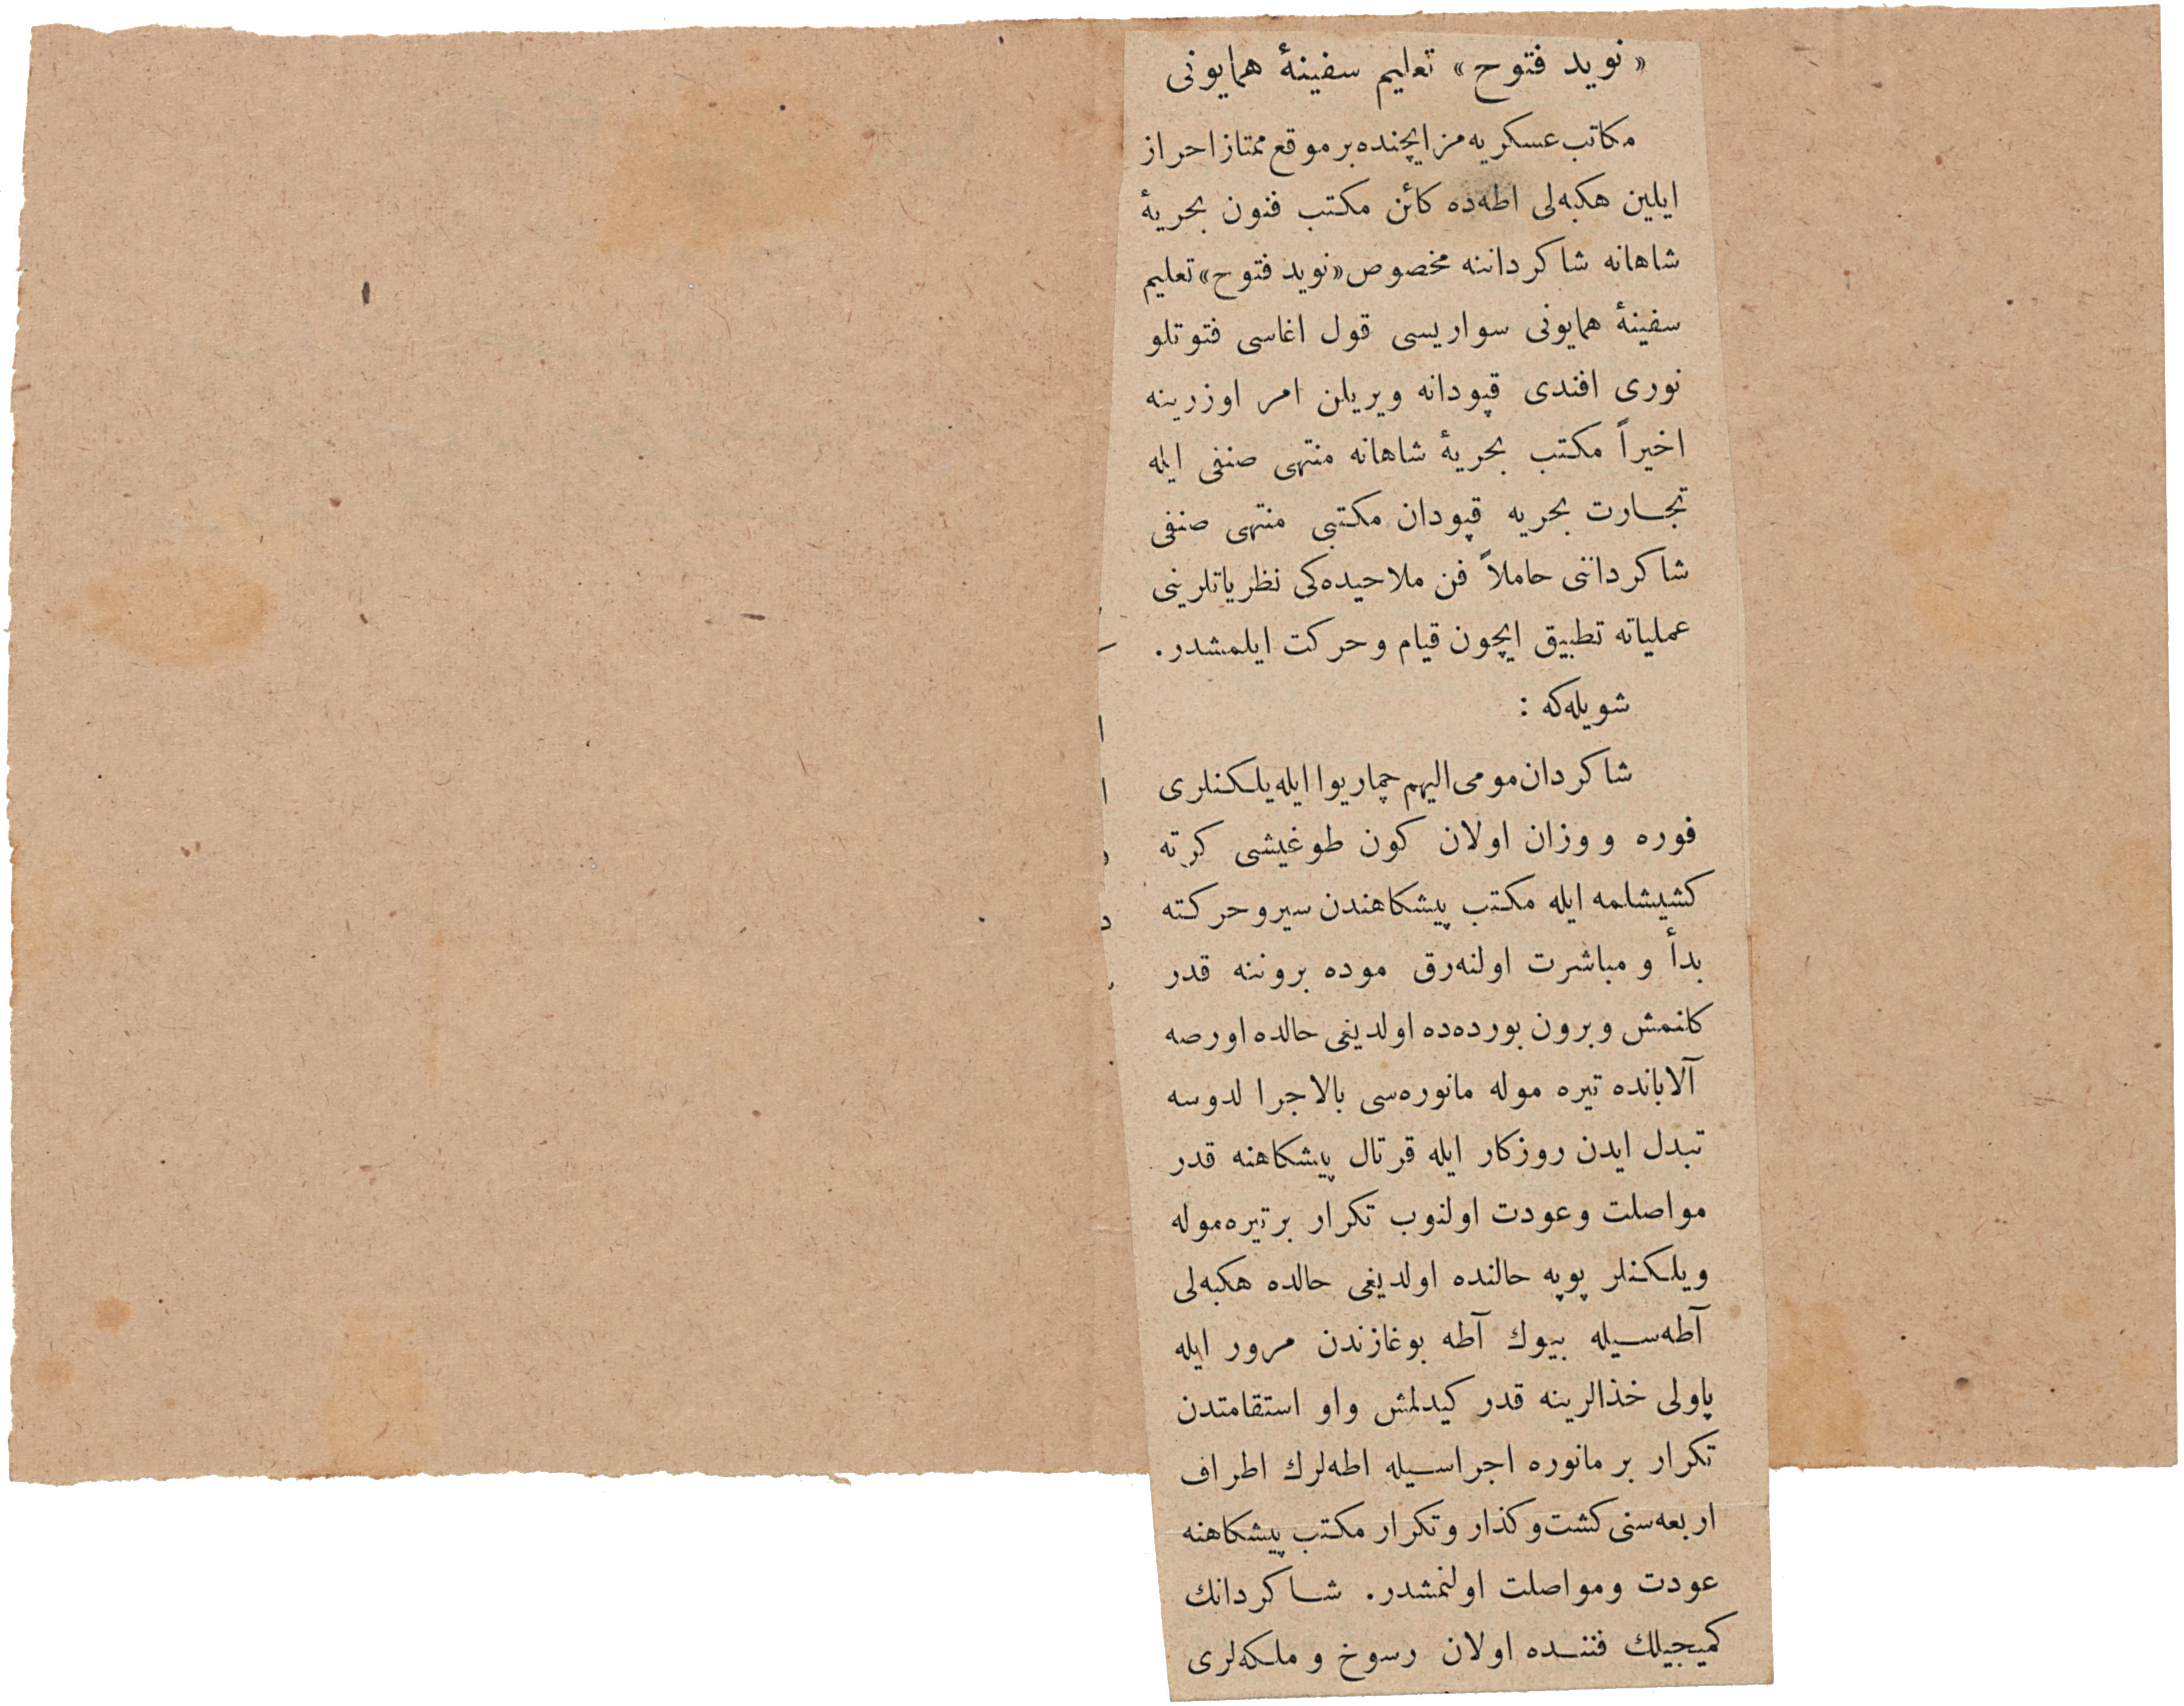 «نوید فتوح» تعلیم سفینهٔ همایونی
مکاتب عسکریه‌مز ایچنده بر موقع ممتاز احراز
ایلین هکبه‌لی اطه‌ده کائن مکتب فنون بحریهٔ
شاهانه شاکرداننه مخصوص «نوید فتوح» تعلیم
سفینهٔ همایونی سواریسی قول اغاسی فتوتلو
نوری افندی قپودانه ویریلن امر اوزرینه
اخیراً مکتب بحریهٔ شاهانه منتهی صنفی ایله
تجارت بحریه قپودان مکتبی منتهی صنفی
شاکرداننی حاملاً فن ملاحیده‌کی نظریاتلرینی
عملیاته تطبیق ایچون قیام و حرکت ایلمشدر.
شویله‌که :
شاکردان مومی الیهم چماریوا ایله یلکنلری
فوره و وزان اولان کون طوغیشی کرته
کشیشلمه ایله مکتب پیشکاهندن سیر و حرکته
بدأ و مباشرت اولنه‌رق موده بروننه قدر
کلنمش و برون بورده‌ده اولدیغی حالده اورصه
آلابانده تیره موله مانوره‌سی بالاجرا لدوسه
تبدل ایدن روزکار ایله قرتال پیشکاهنه قدر
مواصلت و عودت اولنوب تکرار بر تیره موله
ویلکنلر پوپه حالنده اولدیغی حالده هکبه‌لی
آطه‌سیله بیوك آطه بوغازندن مرور ایله
پاولی خذالرینه قدر کیدلمش واو استقامتدن
تکرار بر مانوره اجراسیله اطه‌لرك اطراف
اربعه‌سنی کشت و کذار و تکرار مکتب پیشکاهنه
عودت و مواصلت اولنمشدر. شاکردانك
کمیجیلك فننده اولان رسوخ و ملکه‌لری